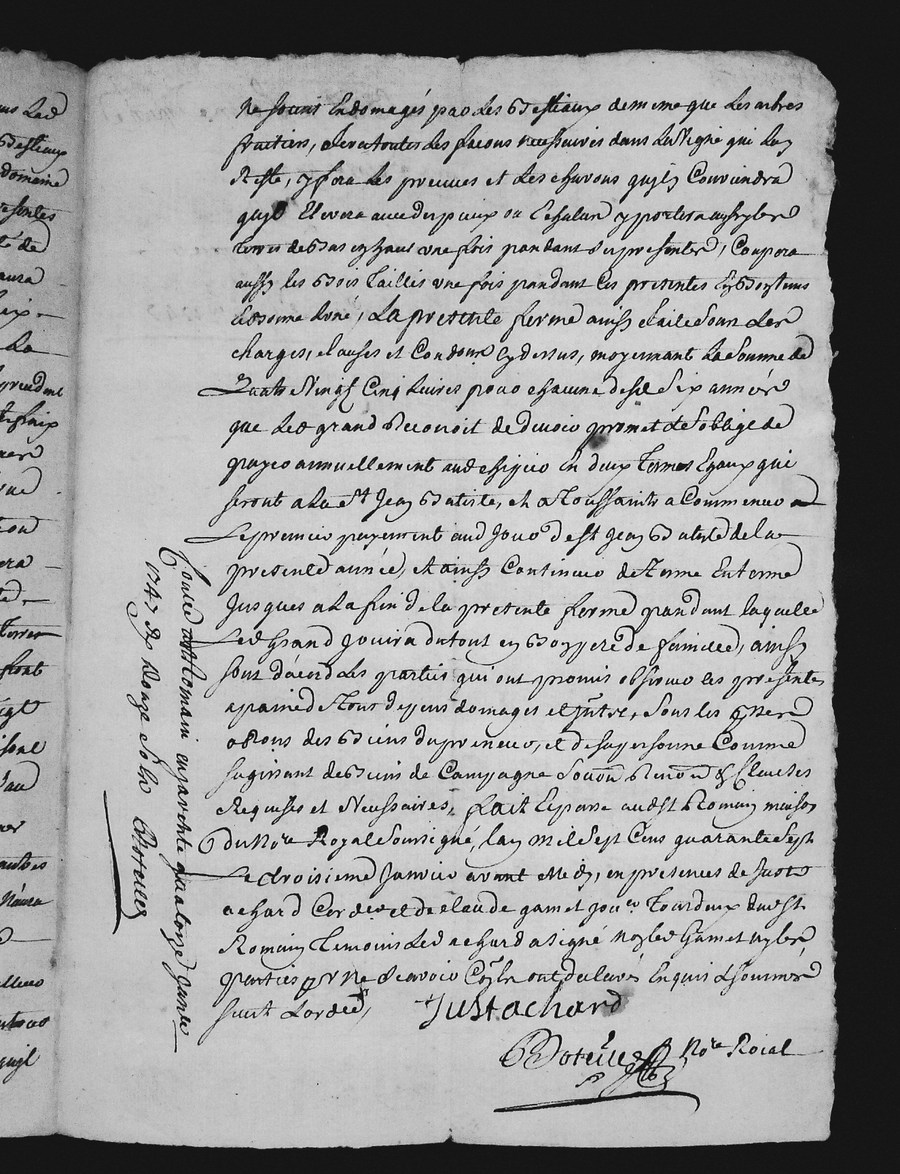 ne soint Endomagés par Les Bestiaux de meme que Les arbres
fruitiers, a Lera toutes Les facons necessaires dans La vigne qui Luy
Reste, y fera Les preuves et Les chavons quil Conviendra
quil Elevera avec des pieux ou Echalas y portera aussy les
terres de Bas en haut une fois pandant Ses presentes, Coupera
aussy les Bois taillis une fois pandant Ces presentes
La presente ferme ainsy faite Sous Les
charges, clauses et Condons Cy dessus, moyennant La Somme de
Quatre Vingt Cinq Livres pour chacune desd Six années
que Led grand Reconoit devoir promet et S'oblige de
payer annuellement aud En deux Termes Egaux qui
seront a La st Jean Batiste, et a Toussaints a Commencer
Le premier payement aud Jour d st Jean Batiste de la
presente année, et ainsy Continuer de Terme En terme
Jusques a La fin de La presente ferme pandant laquelle
Led Grand Jouira du tout en Bon pere de famille, ainsy
sont d'acord Les parties qui ont promis observer les presentes
a paine de Tous depens domages et Jnts, Sous les
des Biens du preneur, et de sa personne Comme
sagissant de Biens de Campagne Renon & Clauses
Requises et Necessaires, fait Et passé aud st Romain maison
Du Nore Royal Soussigné, Lan mil Sept Cens quarante Sept
Le troisieme Janvier avant Midy, en presences de Just
achard Cord et de Claude gamet Tourdeux dud st
Romain Temoins Led achard a signé non led Gamet ny les
parties pr ne Scavoir Ce quils ont declaré Enquis et Sommés
suivt L'ord
Just achard
Boteille Nore Roial
Conllé a st Romain en jarche quatorze janr
1747 Rs Douze Sols Boteille